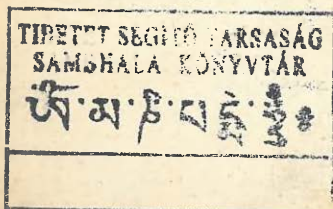 TIBETET SEGÍTŐ TÁRSASÁG
SAMBHALA KÖNYVTÁR
ༀ་མ་ཎི་པ་དྨེ་ཧཱུྃ